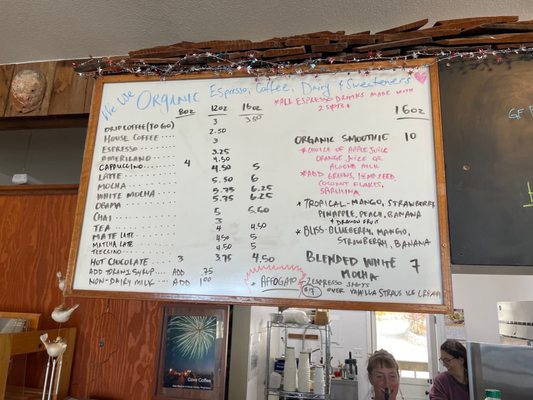 We ♡ ORGANIC Espresso, Coffee, Dairy & Sweeteners
8oz 12oz 16oz
DRIP COFFEE (TO GO) 3 3.50
HOUSE COFFEE 2.50
ESPRESSO 3
AMERICANO 3.25
CAPPUCCINO 4 4.50
LATTE 4.50 5
MOCHA 5.50 6
WHITE MOCHA 5.75 6.25
OBAMA 5.75 6.25
CHAI 5 5.50
TEA 3
MATE LATE 4 4.50
MATCHA LATE 4.50 5
TECCINO 4.50 5
HOT CHOCOLATE 3.75 4.50
ADD SYRUP ADD .75
NON-DAIRY MILK ADD 1.00
*ALL ESPRESSO DRINKS MADE WITH
2 SHOTS*
16oz
ORGANIC SMOOTHIE 10
*CHOICE OF APPLE JUICE
ORANGE JUICE OR
ALMOND MILK
*ADD GREENS, HEMP SEED,
COCONUT FLAKES,
SPIRULINA
*TROPICAL- MANGO, STRAWBERRY
PINEAPPLE, PEACH, BANANA
& DRAGON FRUIT
*BLISS- BLUEBERRY, MANGO,
STRAWBERRY, BANANA
BLENDED WHITE
MOCHA 7
AFFOGATO 2 ESPRESSO SHOTS
OVER VANILLA STRAUS ICE CREAM
GF
Cove Coffee